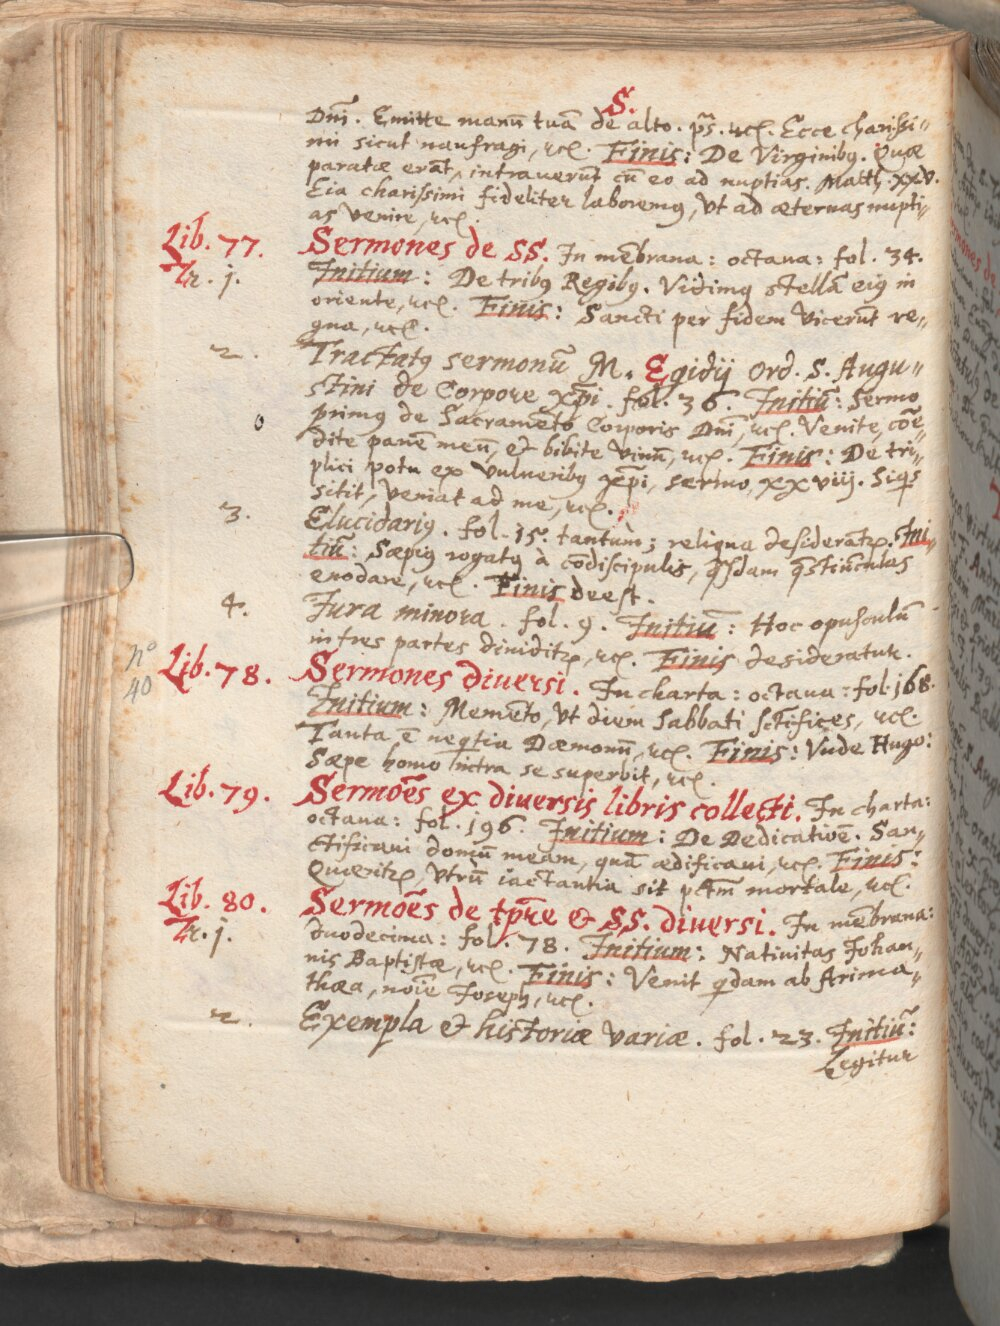 S.
Dñi. Emitte manū tuā de alto. ps. &c. Ecce charissi„
mi sicut naufragi, &c. Finis: De Virginibꝯ. Quæ
paratæ erāt, intraverūt cū eo ad nuptias. Matth. XXV.
Eia charissimi fideliter laboremꝯ, ut ad æternas nupti„
as venire, &c.
Lib. 77. Sermones de SS. In mēbrana: octava: fol. 34.
Tr. j. Initium: De tribꝯ Regibꝯ. Vidimꝯ stellā eiꝯ in
oriente, &c. Finis: Sancti per fidem vicerūt re„
gna, &c.
2. Tractatꝯ sermonū M. Egidij Ord. S. Augu„
stini de Corpore xp̄i. fol. 36. Initiū: Sermo
primꝯ de Sacramēto Corporis Dñi, &c. Venite, cōe„
dite panē meū, et bibite vinū, &c. Finis: De tri„
plici potu ex vulneribꝯ xp̄i, sermo, xxviij. Siqs
sitit, veniat ad me, &c.
3. Elucidariꝯ. fol. 15. tantùm; reliqua desiderātr. Ini„
tiū: Sæpiꝯ rogatꝯ à cōdiscipulis, qsdam qstiūnculas
enodare, &c. Finis deest.
4. Jura minora. fol. 9. Initiū: Hoc opusculū
in tres partes dividitr, &c. Finis desideratur.
nº 40
Lib. 78. Sermones diversi. In charta: octava: fol. 168.
Initium: Memēto, ut diem Sabbati sctifices, &c.
Tanta ē neqtia Dæmonū, &c. Finis: Vnde Hugo:
Sæpe homo intra se superbit, &c.
Lib. 79. Sermōes ex diversis libris collecti. In charta:
octava: fol. 196. Initium: De Dedicatiōe. San„
ctificavi domū meam, quā ædificavi, &c. Finis:
Queritr, utrū iactantia sit pctm mortale, &c.
Lib. 80. Sermōes de tpre & SS. diversi. In mēbrana:
Tr. j. duodecima: fol. 78. Initium: Nativitas Johan„
nis Baptistæ, &c. Finis: Venit qdam ab Arima„
thæa, nōie Joseph, &c.
2. Exempla et historiæ variæ. fol. 23. Initiū:
Legitur